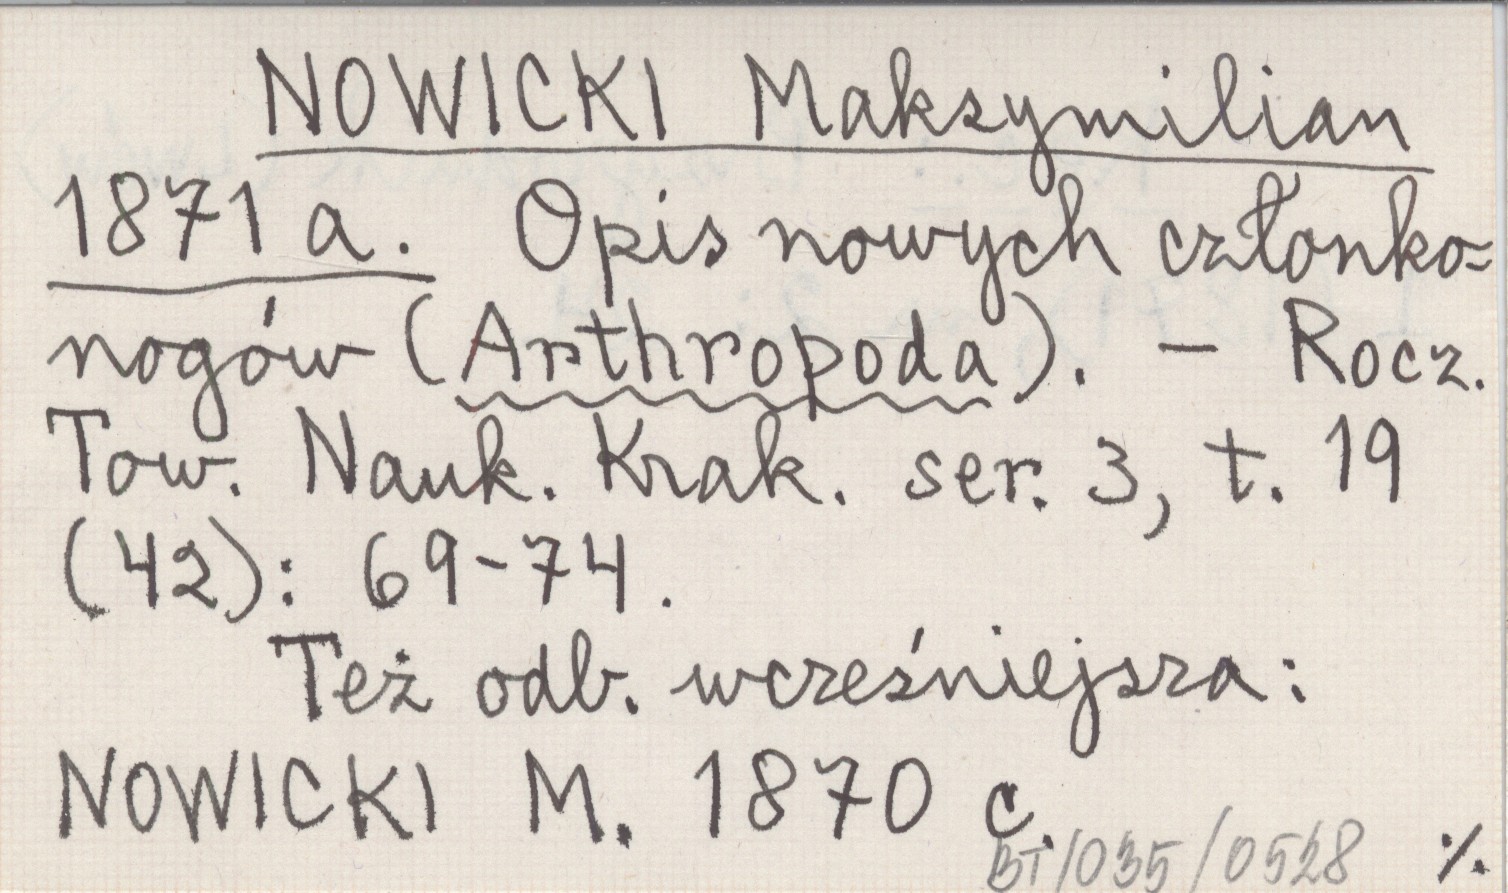 NOWICKI Maksymilian
1871 a. Opis nowych członko=
nogów (Arthropoda). - Rocz.
Tow. Nauk. Krak. ser. 3, t. 19
(42): 69-74.
Też odb. wcześniejsza:
NOWICKI M. 1870 c.
BT/035/0528 ./.